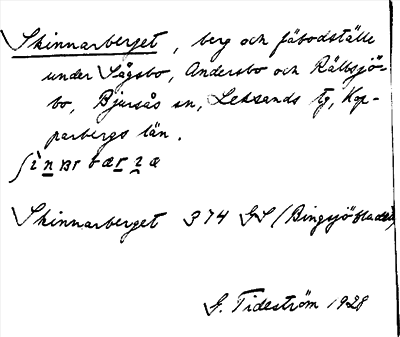 Skinnarberget, berg och fäbodställe
under Sågsbo, Andersbo och Rältsjö-
bo, Bjursås sn, Leksands tg, Kop-
parbergs län.
Skinnarberget 374 GS (Bingsjöbladet)
G. Tideström 1928